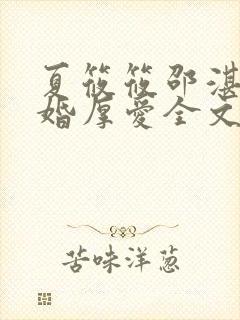 夏筱筱邵湛
婚厚爱全文
苦味洋葱